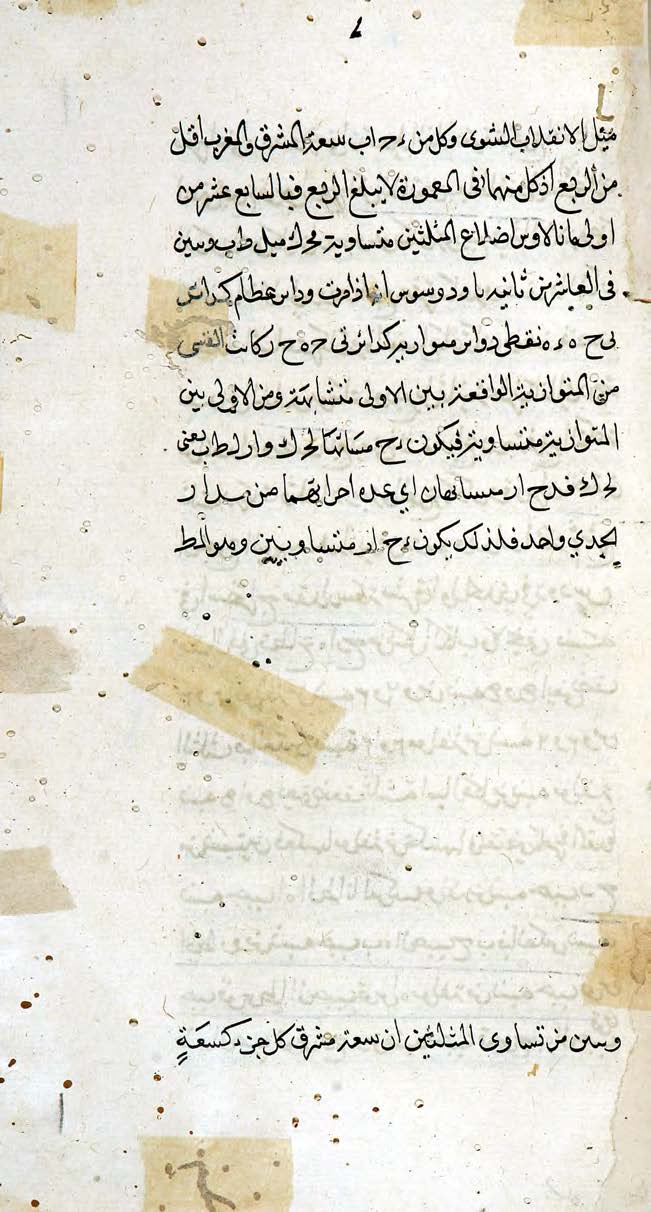 ميل الانقلاب الشتوى وكل من ءح اب سعة المشرق والمغرب اقل
من الربع اذ كل منهما فى المعمورة لا يبلغ الربع فبالسابع عشر من
اولى مانالاوس اضلاع المثلثين متساوية محرك ميل طب وسين
فى العاشر من ثانيه ثاودوسيوس انه اذا مرت دوائر عظام كدائرتى
ى ح ه ه نقطى دوائر متوازية كدائرتى ح ه ح ر كانت القسى
من المتوازية الواقعة بين الاولى متشابهة ومن الاولى بين
المتوازية متساوية فيكون ءح مشابها لحرك وار لطب يعنى
لحرك فدح ار متشابهان اى عدد اجزائهما من مدار
الجدي واحد فلذلك يكون ءح ار متساويين وهو المط
وسن من تساوى المثلثين ان سعة مشرق كل جزء كسعة